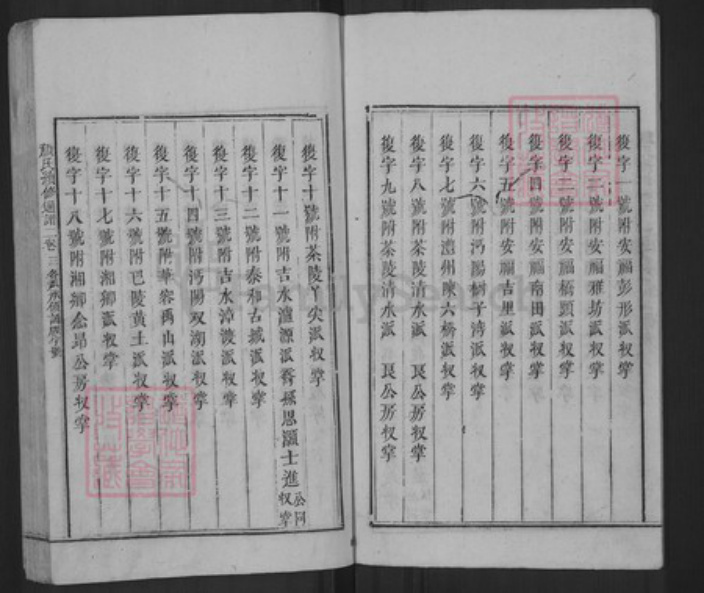 復字一號附安福彭形派收掌
復字二號附安福雅坊派收掌
復字三號附安福橋頭派收掌
復字四號附安福南田派收掌
復字五號附安福吉里派收掌
復字六號附沔陽樹子湾派收掌
復字七號附澧州陳六橋派收掌
復字八號附茶陵清水派 艮公房收掌
復字九號附茶陵清水派 艮公房收掌
復字十號附茶陵丫尖派收掌
復字十一號附吉水瀘源派裔孫思灝士進公同收掌
復字十二號附泰和古城派收掌
復字十三號附吉水漳渡派收掌
復字十四號附沔陽双湖派收掌
復字十五號附華容禹山派收掌
復字十六號附巴陵黄土派收掌
復字十七號附湘鄉派收掌
復字十八號附湘鄉念昂公房收掌
FamilySearch